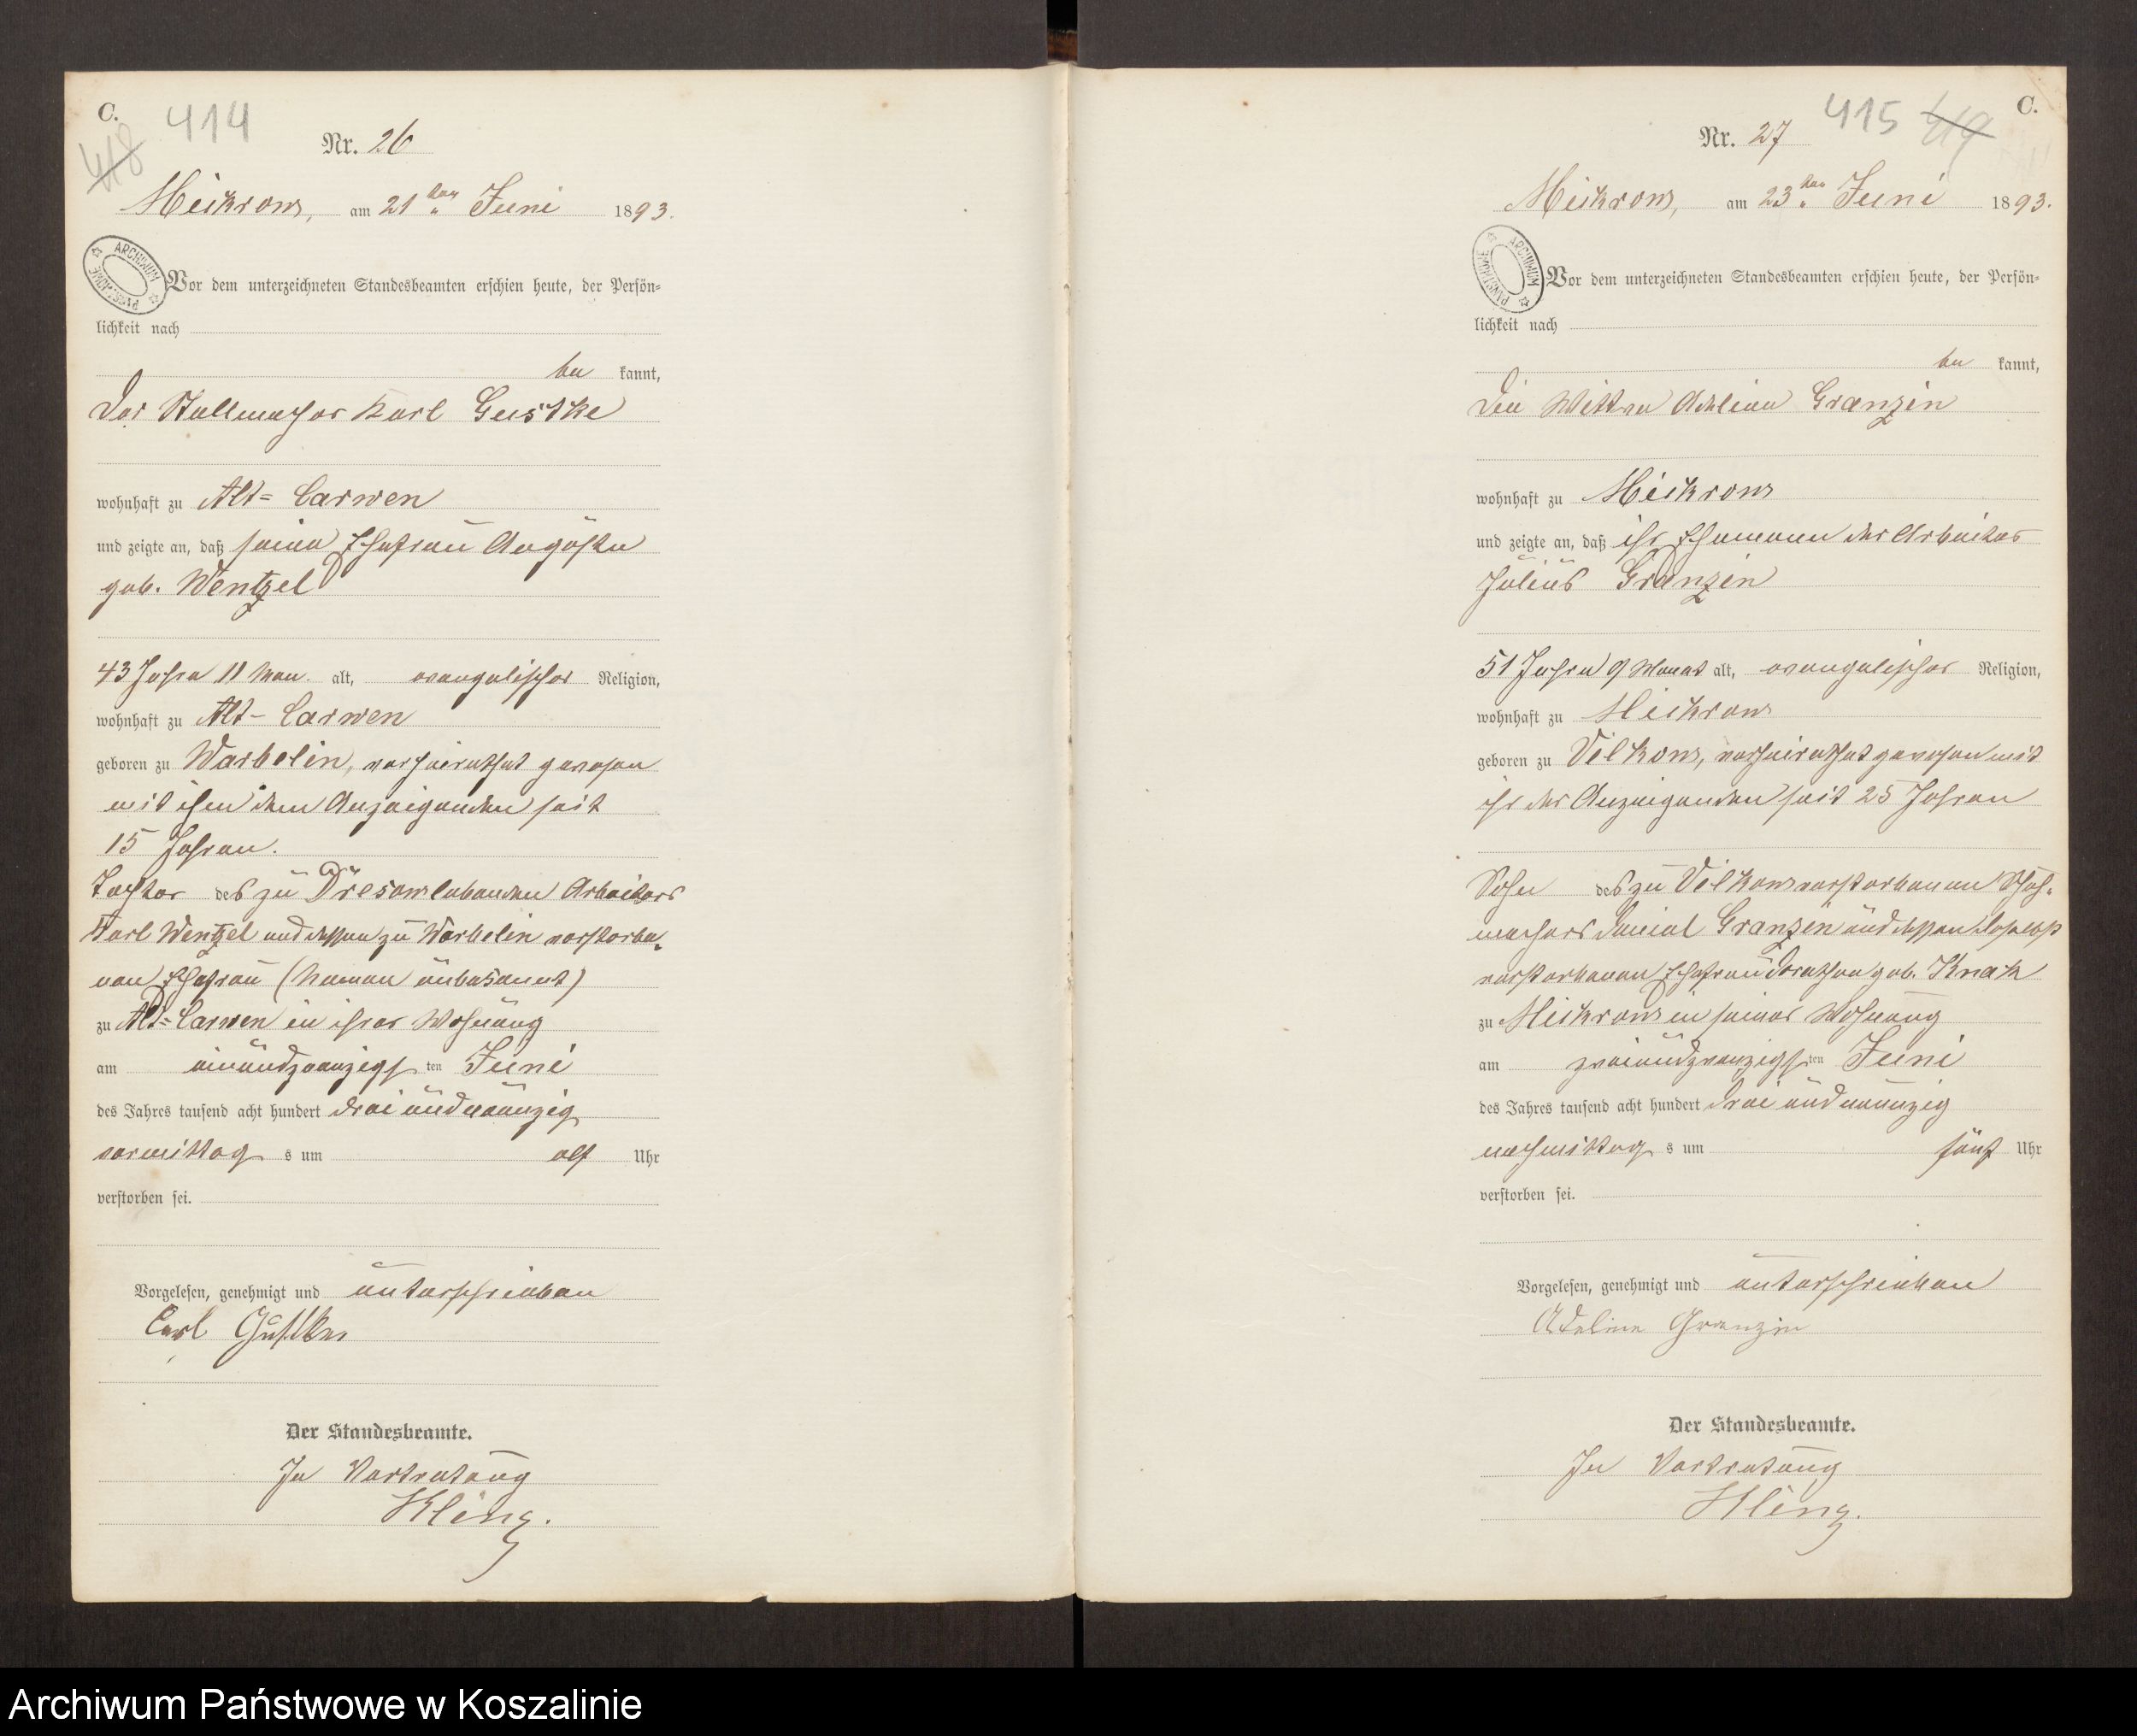 C.
414
418
Nr. 26
Mickrow, am 21ten Juni 1893.
ARCHIWUM PAŃSTWOWE
Vor dem unterzeichneten Standesbeamten erschien heute, der Persön-
lichkeit nach
be kannt,
Der Stellmacher Karl Gustke
wohnhaft zu Alt-Carwen
und zeigte an, daß seine Ehefrau Auguste
geb. Wentzel
43 Jahre 11 Mon. alt, evangelischer Religion,
wohnhaft zu Alt-Carwen
geboren zu Warbelin, verheirathet gewesen
mit ihm dem Anzeigenden seit
15 Jahren.
Tochter des zu Dresow lebenden Arbeiters
Karl Wentzel und dessen zu Warbelin verstorbe-
nen Ehefrau (Namen unbekannt)
zu Alt-Carwen in ihrer Wohnung
am einundzwanzigsten Juni
des Jahres tausend acht hundert drei und neunzig
vormittags um elf Uhr
verstorben sei.
Vorgelesen, genehmigt und unterschrieben
Carl Gustke
Der Standesbeamte.
In Vertretung
Kling.
C.
415
419
Nr. 27
Mickrow, am 23ten Juni 1893.
ARCHIWUM PAŃSTWOWE
Vor dem unterzeichneten Standesbeamten erschien heute, der Persön-
lichkeit nach
be kannt,
Die Wittwe Adeline Granzin
wohnhaft zu Mickrow
und zeigte an, daß ihr Ehemann der Arbeiter
Julius Granzin
51 Jahre 9 Monat alt, evangelischer Religion,
wohnhaft zu Mickrow
geboren zu Vilkow, verheirathet gewesen mit
ihr der Anzeigenden seit 25 Jahren
Sohn des zu Vilkow verstorbenen Schuh-
machers Daniel Granzin und dessen daselbst
verstorbenen Ehefrau Dorathea geb. Knak
zu Mickrow in seiner Wohnung
am zweiundzwanzigsten Juni
des Jahres tausend acht hundert drei und neunzig
nachmittags um fünf Uhr
verstorben sei.
Vorgelesen, genehmigt und unterschrieben
Adeline Granzin
Der Standesbeamte.
In Vertretung
Kling.
Archiwum Państwowe w Koszalinie